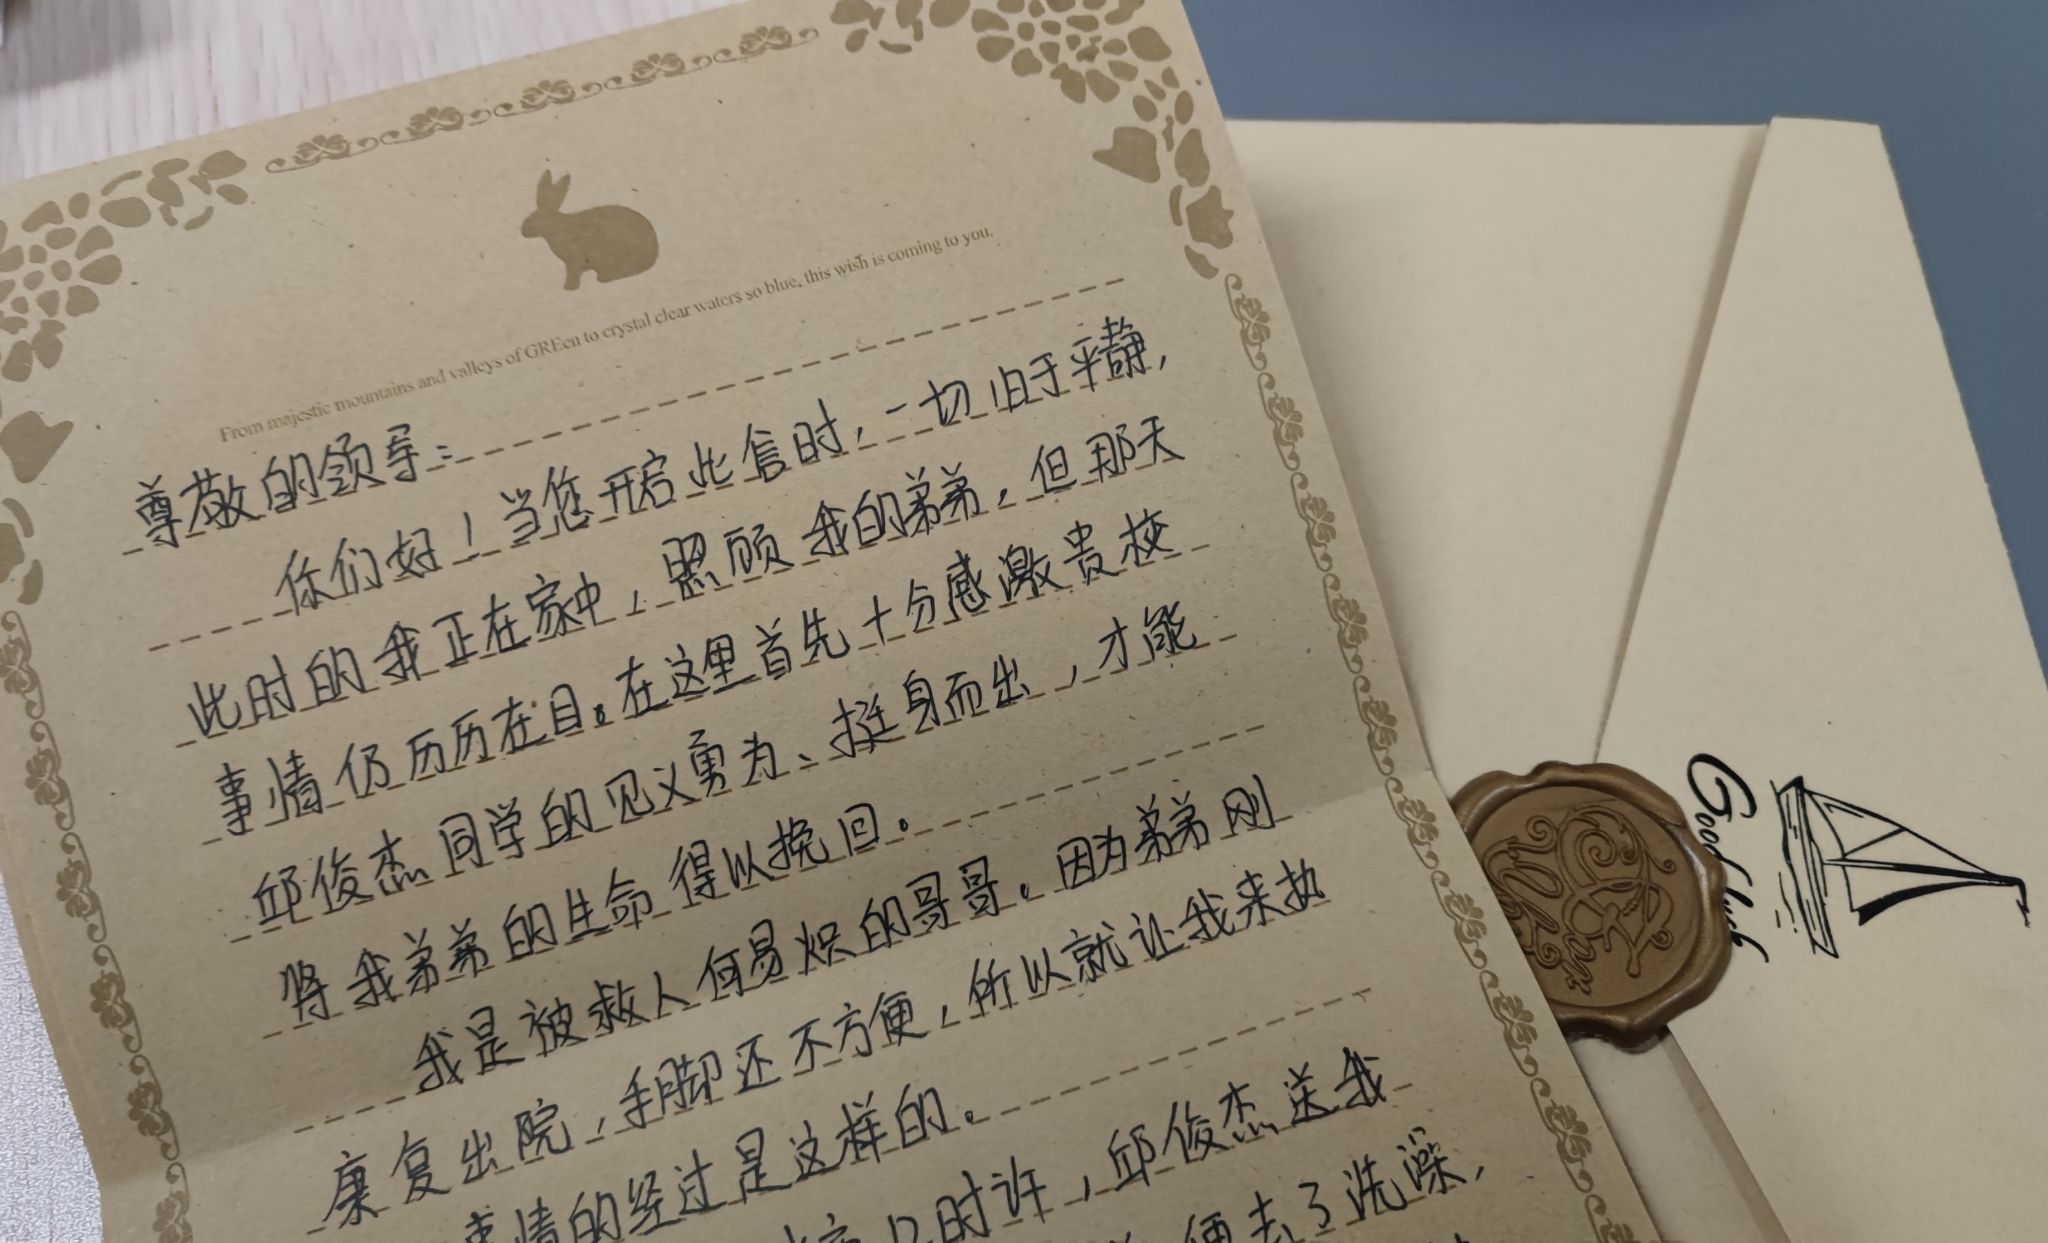 From majestic mountains and valleys of GREen to crystal clear waters so blue, this wish is coming to you.
尊敬的领导：
你们好！当您开启此信时，一切归于平静，
此时的我正在家中，照顾我的弟弟，但那天
事情仍历历在目。在这里首先十分感激贵校
邱俊杰同学的见义勇为、挺身而出，才能
将我弟弟的生命得以挽回。
我是被救人何易炽的哥哥。因为弟弟刚
康复出院，手脚还不方便，所以就让我来执
事情的经过是这样的。
时许，邱俊杰送我
便去了洗澡，
Good luck